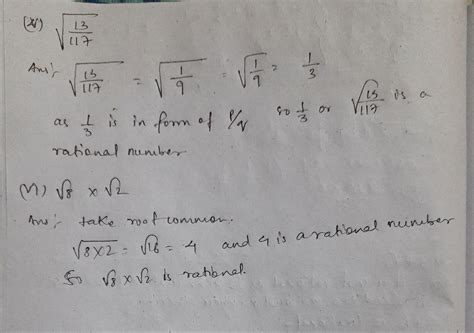 (iv) √13/117
Ans:- √13/117 = √1/9 = √1/9 = 1/3
as 1/3 is in form of p/q so 1/3 or √13/117 is a
rational number
(v) √8 x √2
Ans:- take root common.
√8x2 = √16 = 4 and 4 is a rational number
So √8 x √2 is rational.